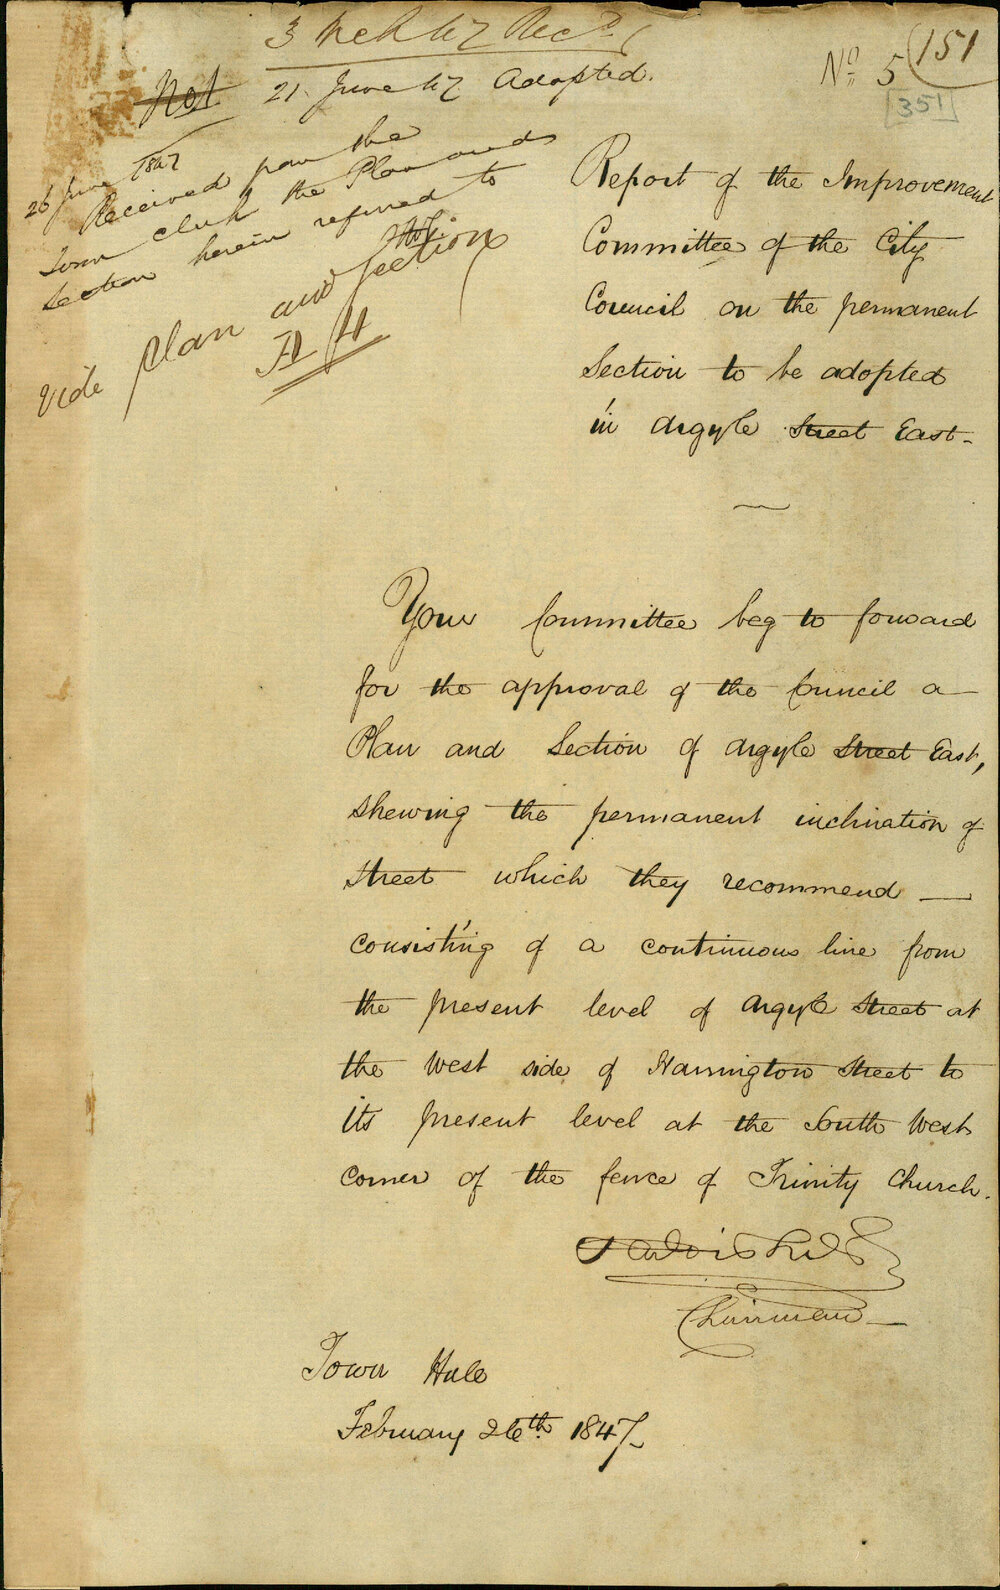 3 Mch 47 Recd.
Not 21 June 47 Adopted.
No 5 (151
[351]
26 June 1847
Received from the
Town clerk the Plan and
Section herein referred to
Vide plan and section
Report of the Improvement
Committee of the City
Council on the permanent
Section to be adopted
in Argyle Street East-
Your Committee beg to forward
for the approval of the Council a
Plan and Section of Argyle Street East,
shewing the permanent inclination of
street which they recommend —
consisting of a continuous line from
the present level of Argyle Street at
the West side of Harrington Street to
its present level at the South West
corner of the fence of Trinity Church.
Chairman —
Town Hall
February 26th 1847